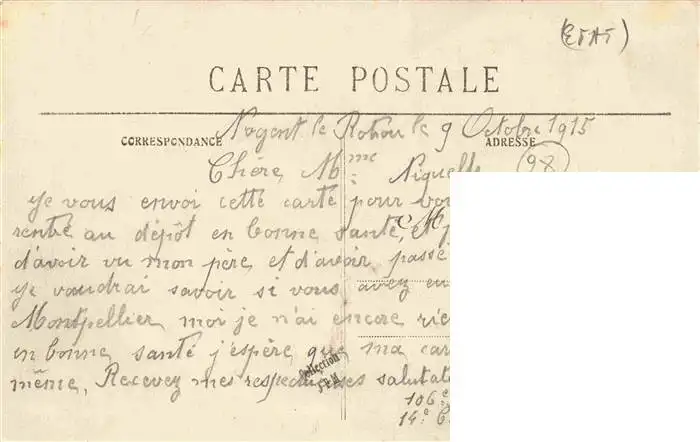 (ETAT)
CARTE POSTALE
CORRESPONDANCE
ADRESSE
Nogent le Rotrou le 9 Octobre 1915
98
Chère Mme
Je vous envoi cette carte pour
rentré au dépôt en bonne santé, et
d'avoir vu mon père, et d'avoir passé
je voudrai savoir si vous avez
Montpellier, moi je n'ai encore
en bonne santé j'espère que ma
même, Recevez mes respectueuses
Collection
106e
14e C